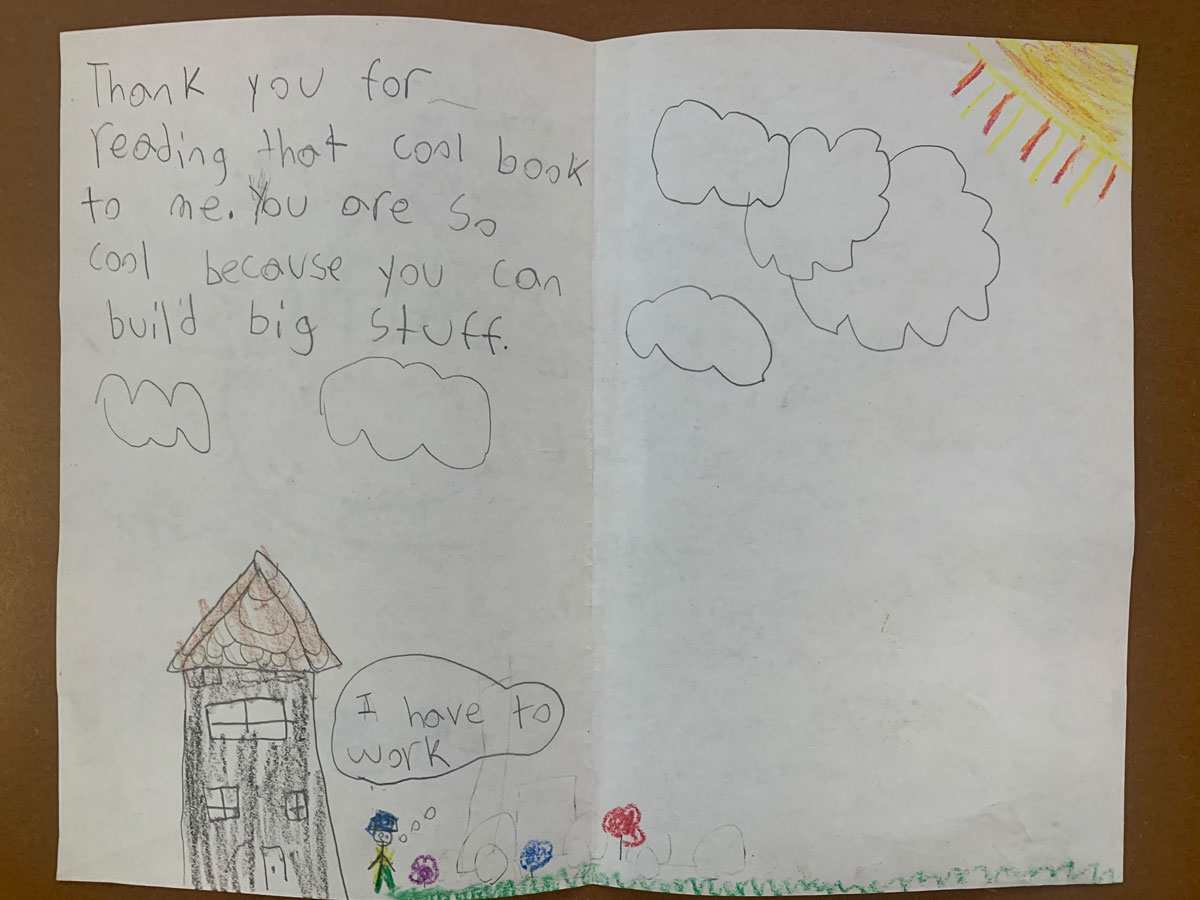 Thank you for
reading that cool book
to me. You are so
cool because you can
build big stuff.
I have to
work